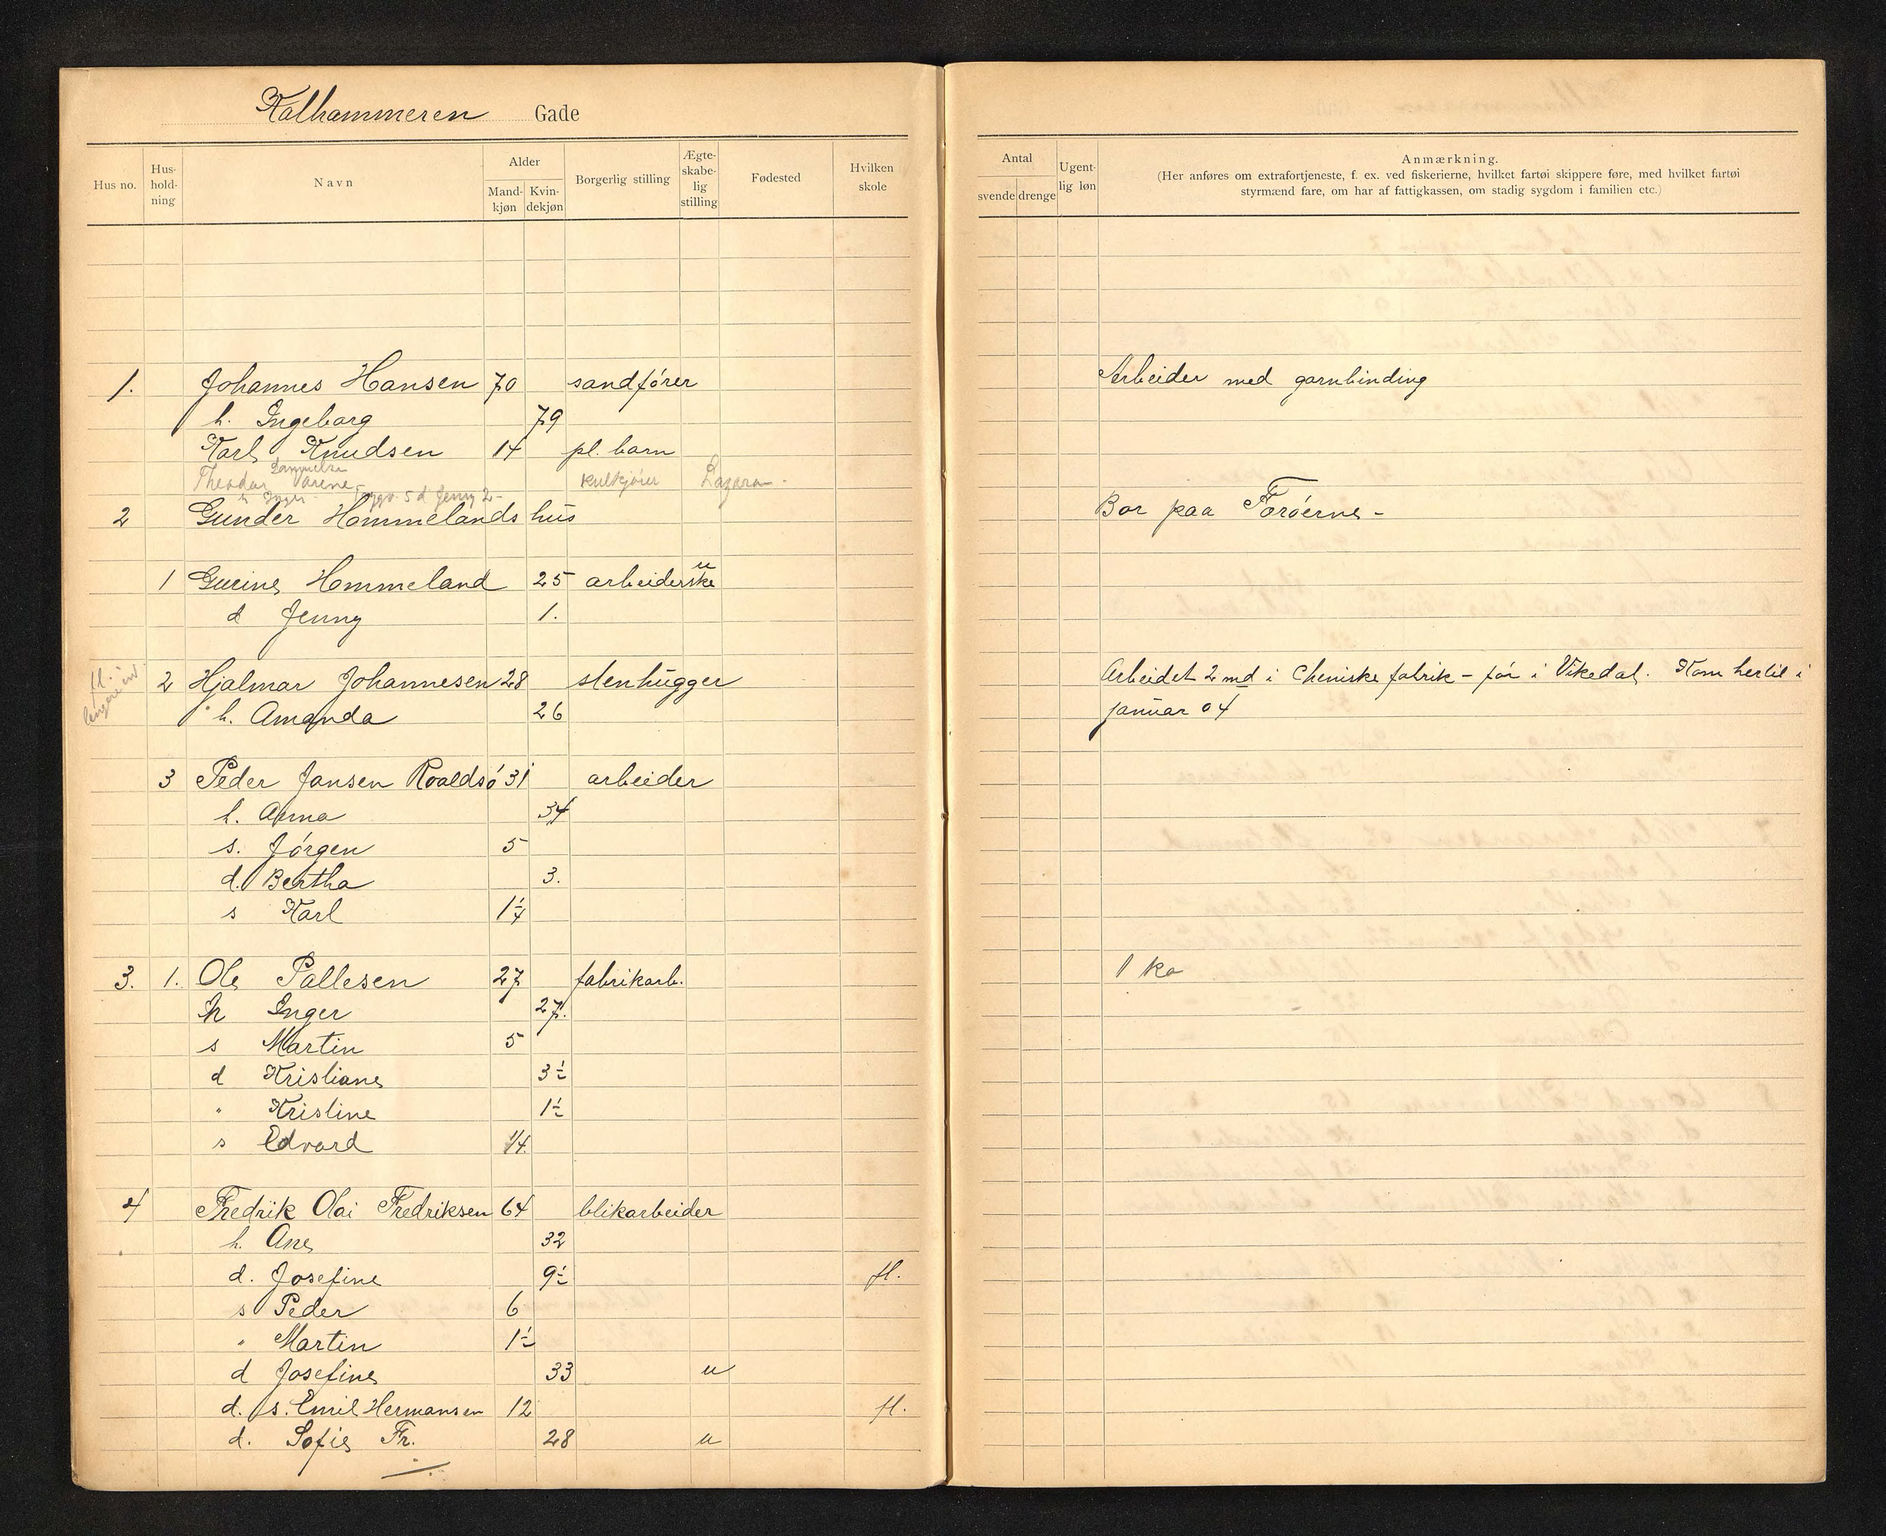 Kalhammeren Gade
Hus no. Hus-hold-ning Navn Alder Mand-kjøn Kvin-dekjøn Borgerlig stilling Ægte-skabe-lig stilling Fødested Hvilken skole
1. Johannes Hansen 70 sandfører
h. Ingeborg 79
Karl Knudsen 14 pl. barn
Theodor kulkjører
h Inger 5 d Jenny 2
2 Gunder Hommelands hus
1 Gurine Hommeland 25 arbeiderske u
d Jenny 1.
fl.
2 Hjalmar Johannesen 28 stenhugger
h. Amanda 26
3 Peder Jansen Roaldsø 31 arbeider
h. Anna 34
s. Jørgen 5
d. Bertha 3.
s Karl 1¼
3. 1. Ole Pallesen 27 fabrikarb.
h Inger 27.
s Martin 5
d Kristiane 3½
" Kristine 1½
s Edvard ¼
4 Fredrik Olai Fredriksen 64 blikarbeider
h. Ane 32
d. Josefine 9½ fl.
s Peder 6
" Martin 1½
d Josefine 33 u
d. s. Emil Hermansen 12 fl.
d. Sofie Fr. 28 u
Antal svende drenge Ugent-lig løn Anmærkning.
(Her anføres om extrafortjeneste, f. ex. ved fiskerierne, hvilket fartøi skippere føre, med hvilket fartøi
styrmænd fare, om har af fattigkassen, om stadig sygdom i familien etc.)
Arbeider med garnbinding
Bor paa Færøerne -
Arbeidet 2 md i Chemiske fabrik - før i Vikedal. Kom hertil i
januar 04
1 ko